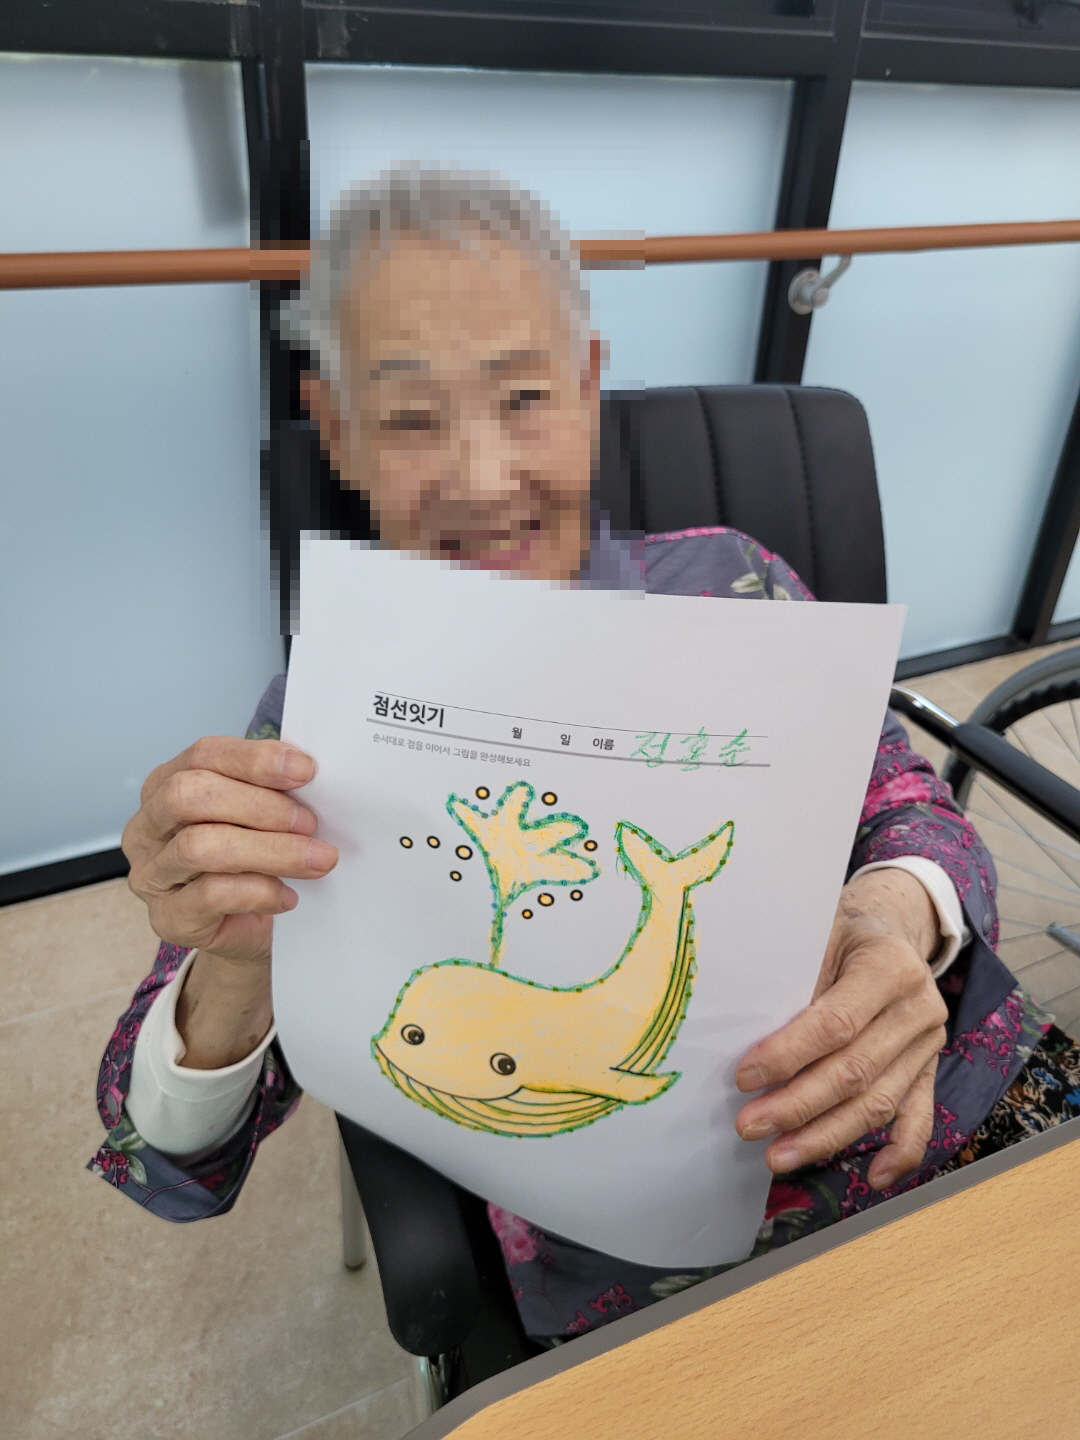 점선잇기 월 일 이름 정홍순
순서대로 점을 이어서 그림을 완성해보세요